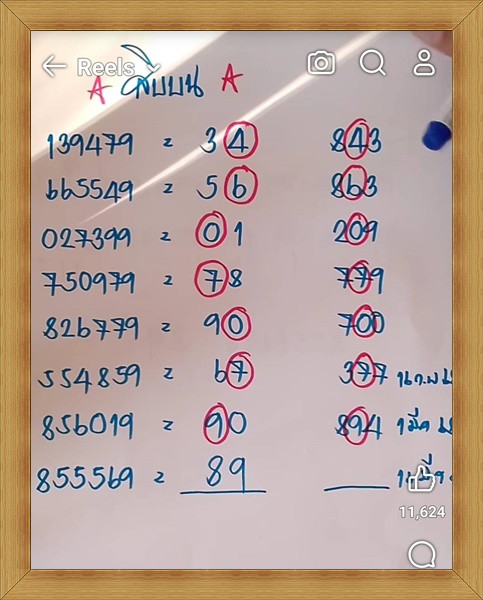 Reels
A สิบบน A
139479 = 34 843
665549 = 56 863
027399 = 01 209
750979 = 78 779
826779 = 90 700
554859 = 67 377
856019 = 90 894
855569 = 89
11,624